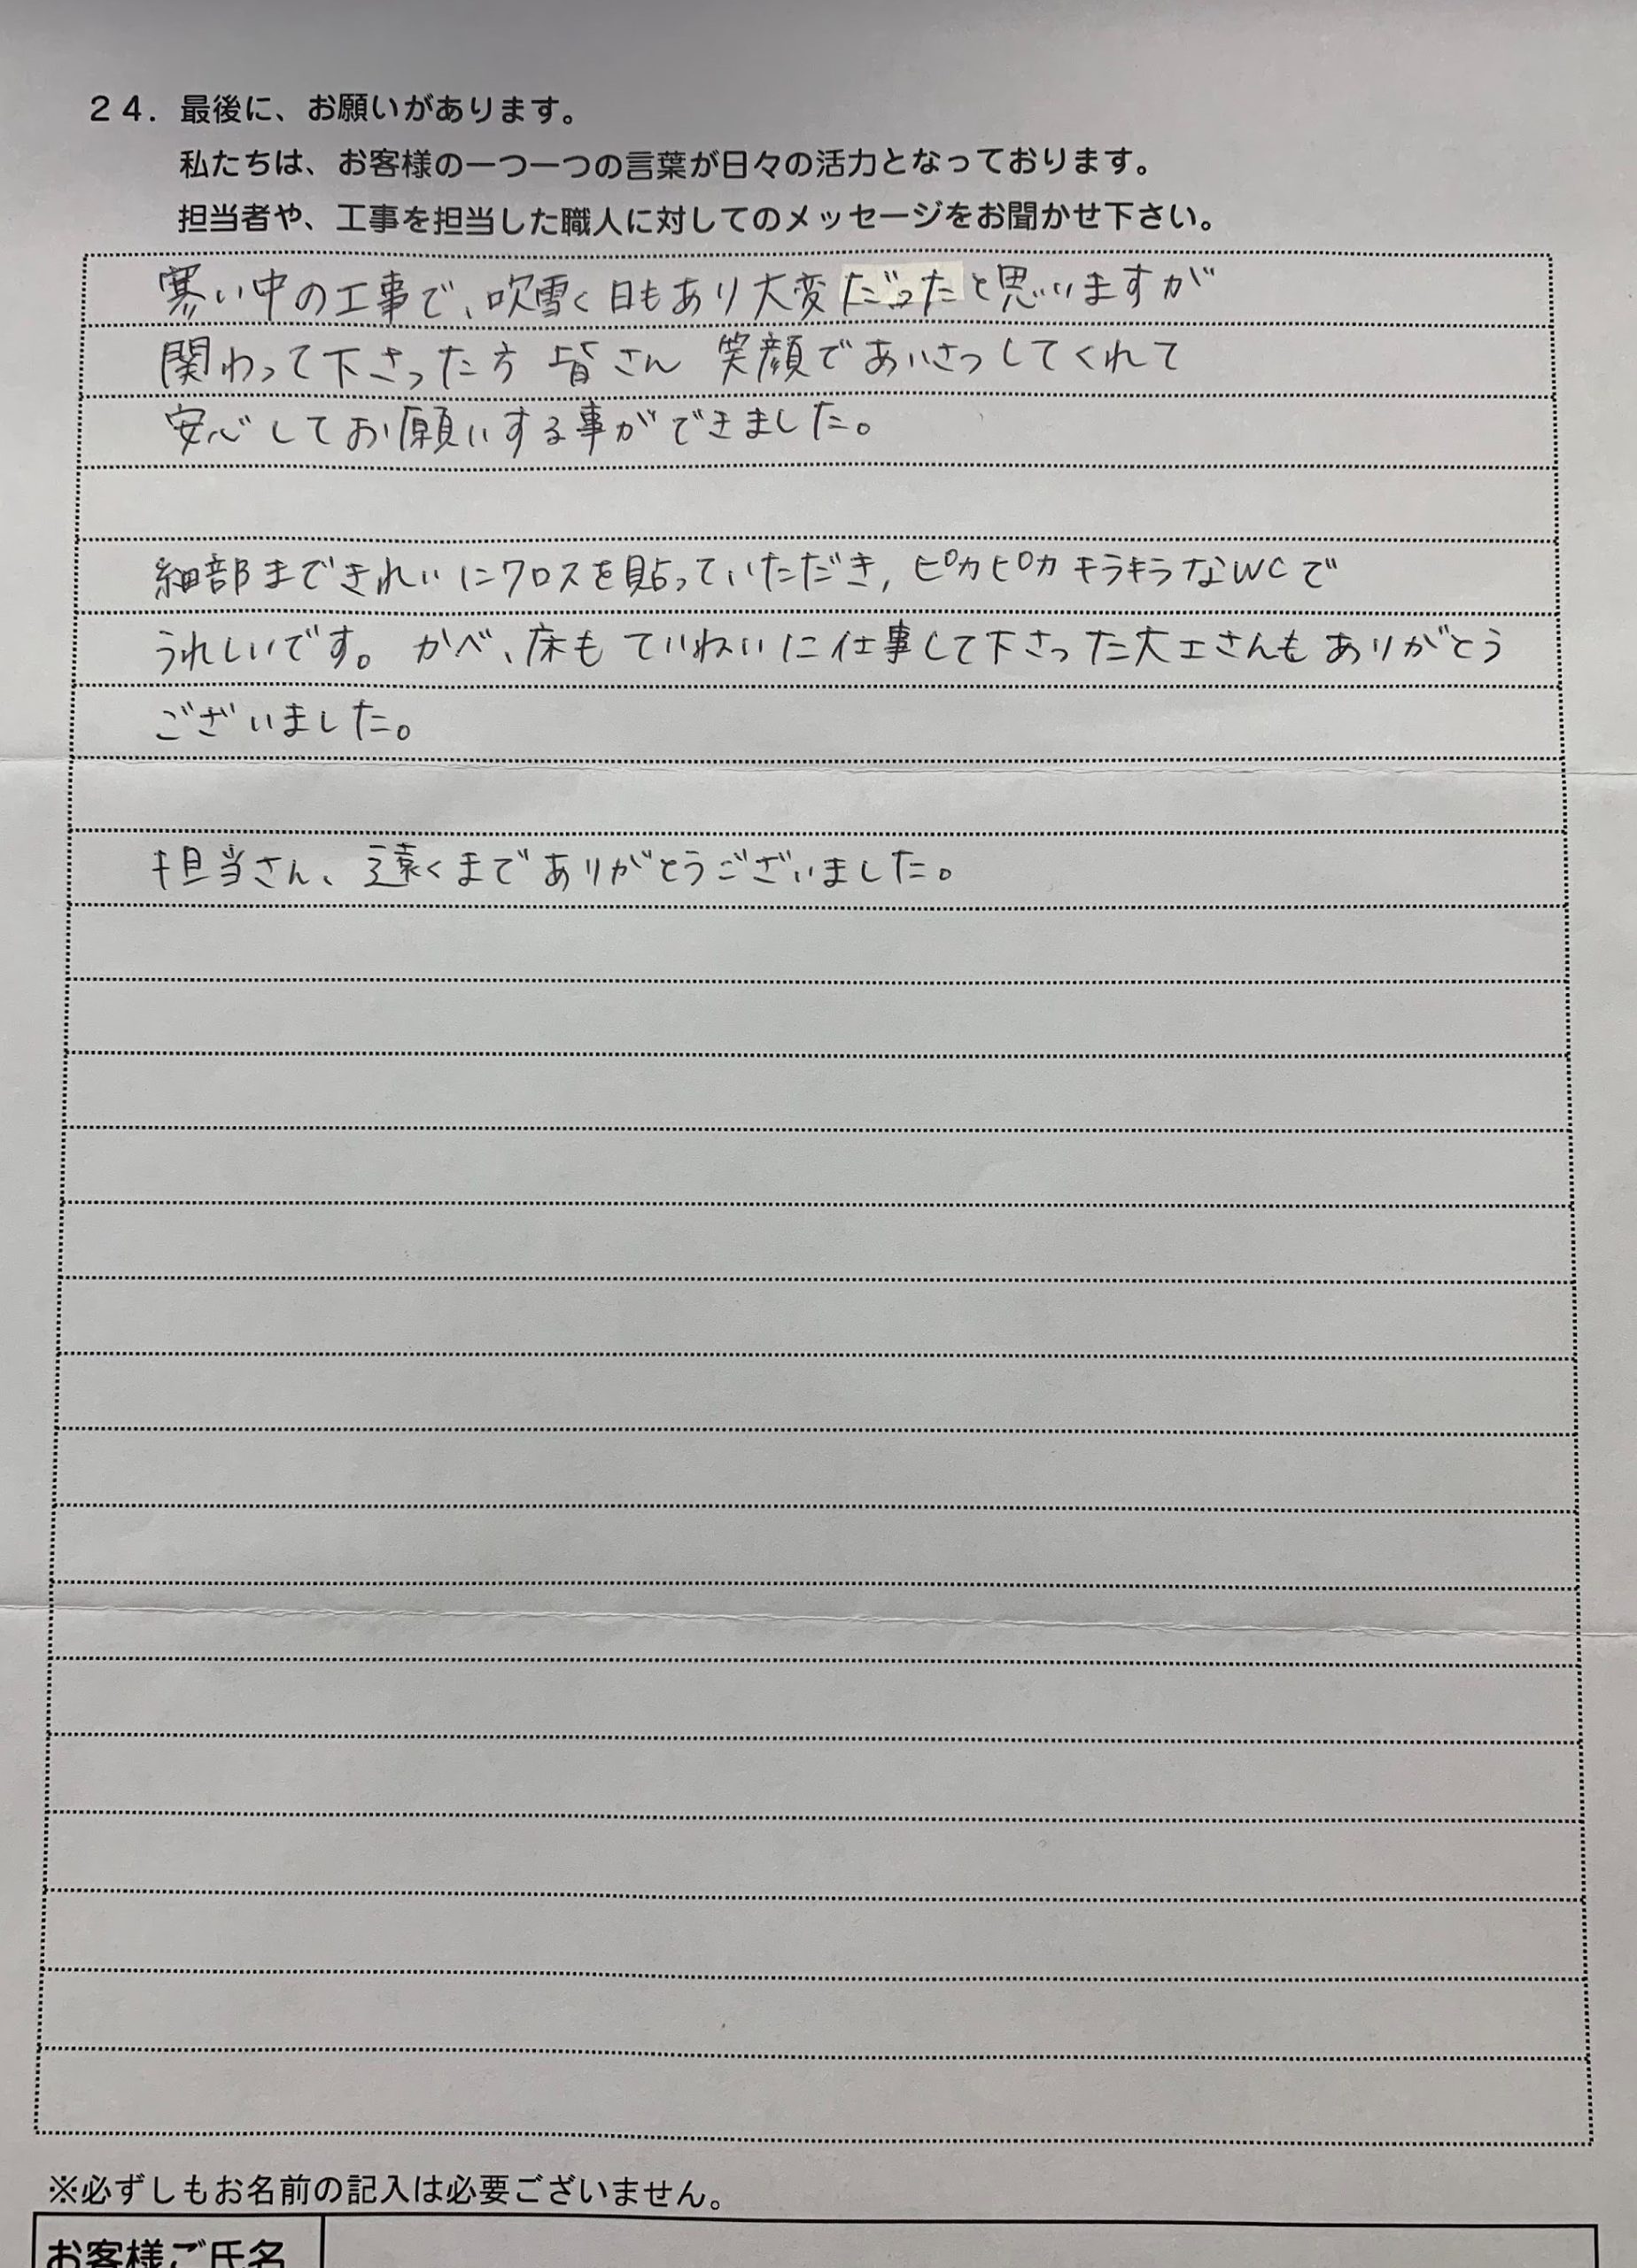 24. 最後に、お願いがあります。
私たちは、お客様の一つ一つの言葉が日々の活力となっております。
担当者や、工事を担当した職人に対してのメッセージをお聞かせ下さい。
寒い中の工事で、吹雪く日もあり大変だったと思いますが
関わって下さった方 皆さん 笑顔であいさつしてくれて
安心してお願いする事ができました。
細部まできれいにクロスを貼っていただき, ピカピカ キラキラなWCで
うれしいです。かべ、床も ていねいに仕事して下さった大工さんも ありがとう
ございました。
担当さん、遠くまでありがとうございました。
※必ずしもお名前の記入は必要ございません。
お客様ご氏名